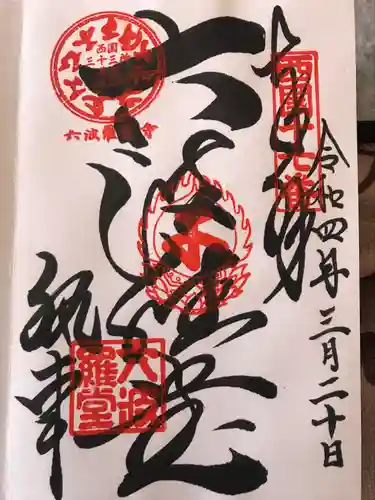 令和四年三月二十日
西国十七番
六波羅堂
西国
三十三所
六波羅蜜寺
六波
羅堂
執事